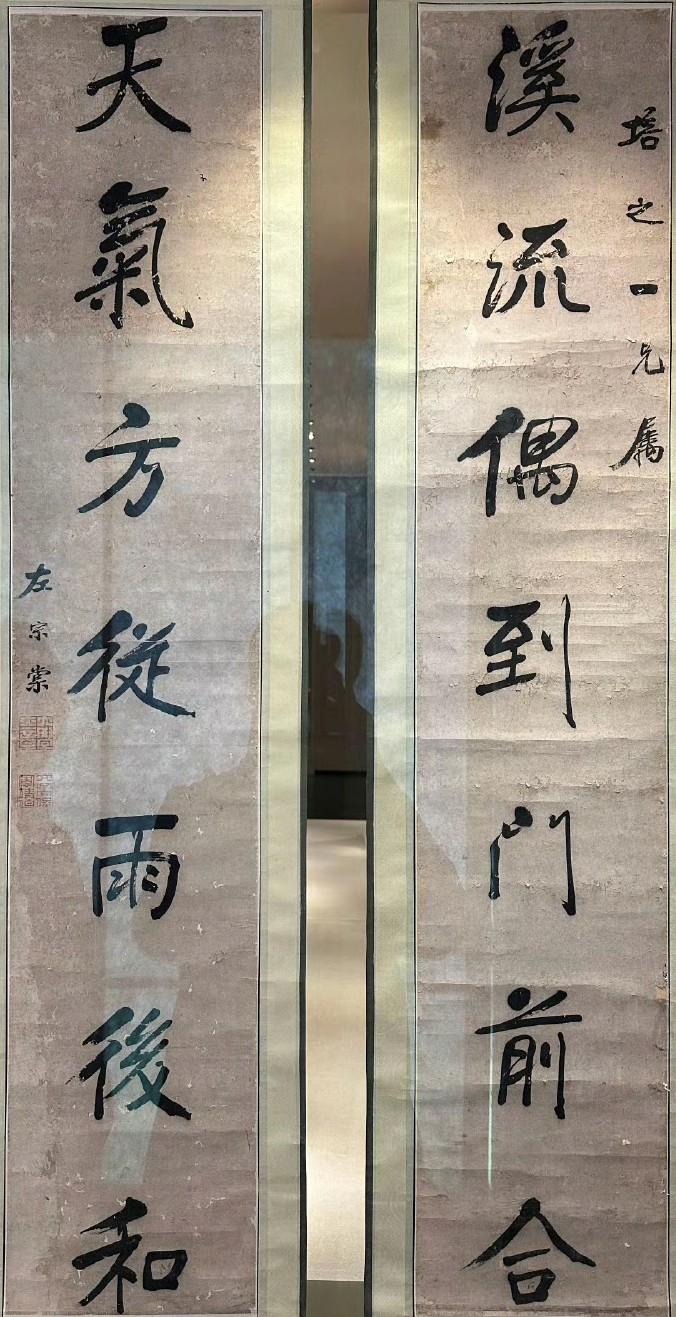 培之一兄属
溪流偶到門前合
天氣方從雨後和
左宗棠